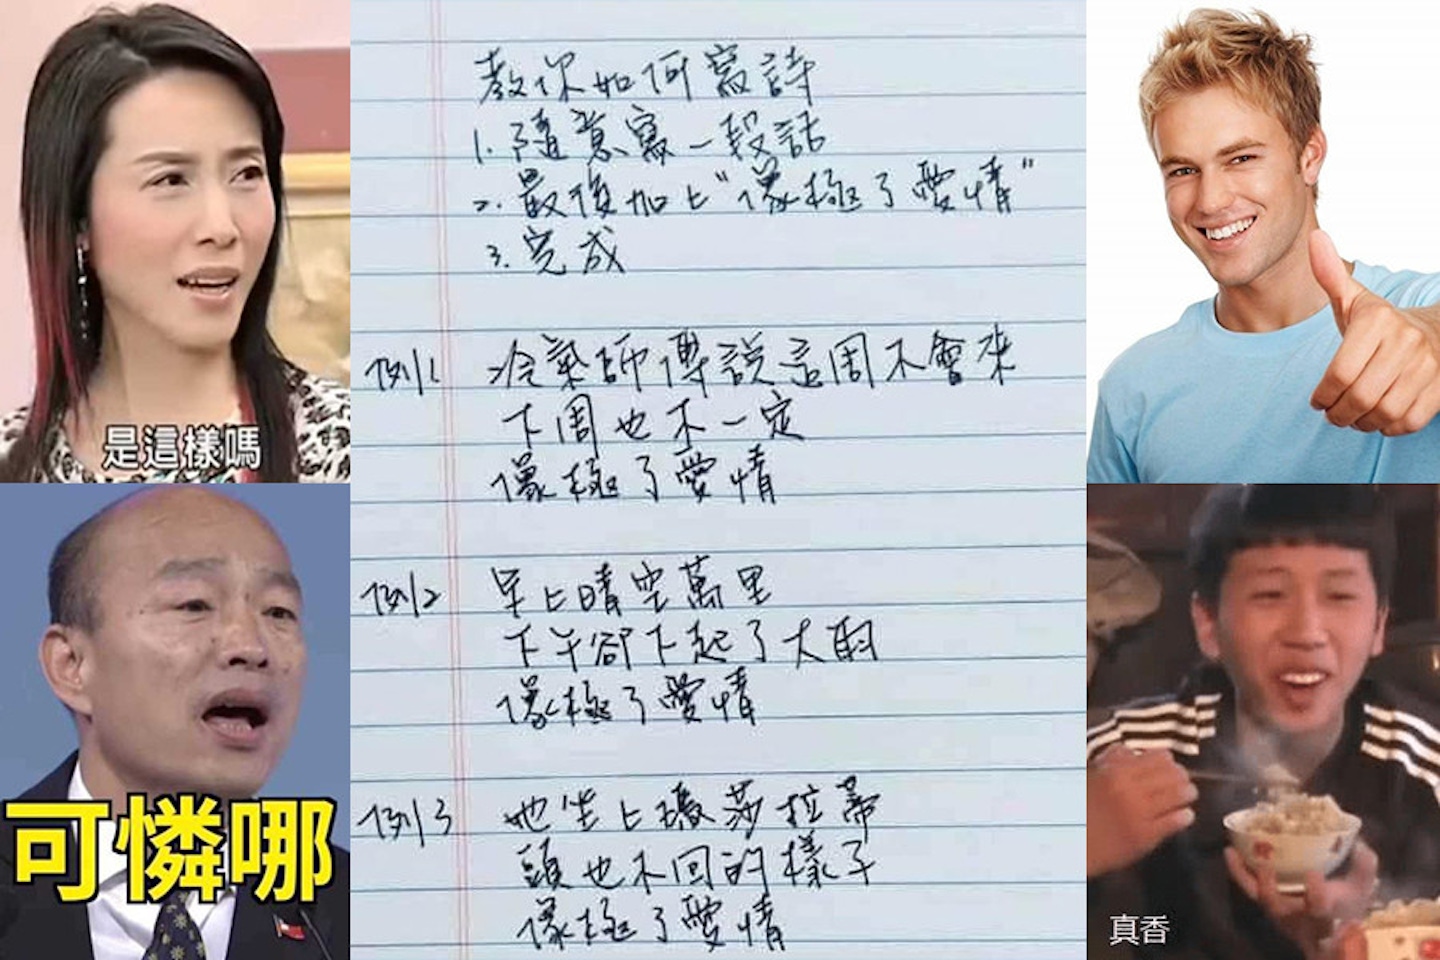 是這樣嗎
可憐哪
教你如何寫詩
1. 隨意寫一段話
2. 最後加上"像極了愛情"
3. 完成
例1. 冷氣師傅說這周不會來
下周也不一定
像極了愛情
例2 早上晴空萬里
下午卻下起了大雨
像極了愛情
例3 她坐上瑪莎拉蒂
頭也不回的樣子
像極了愛情
真香